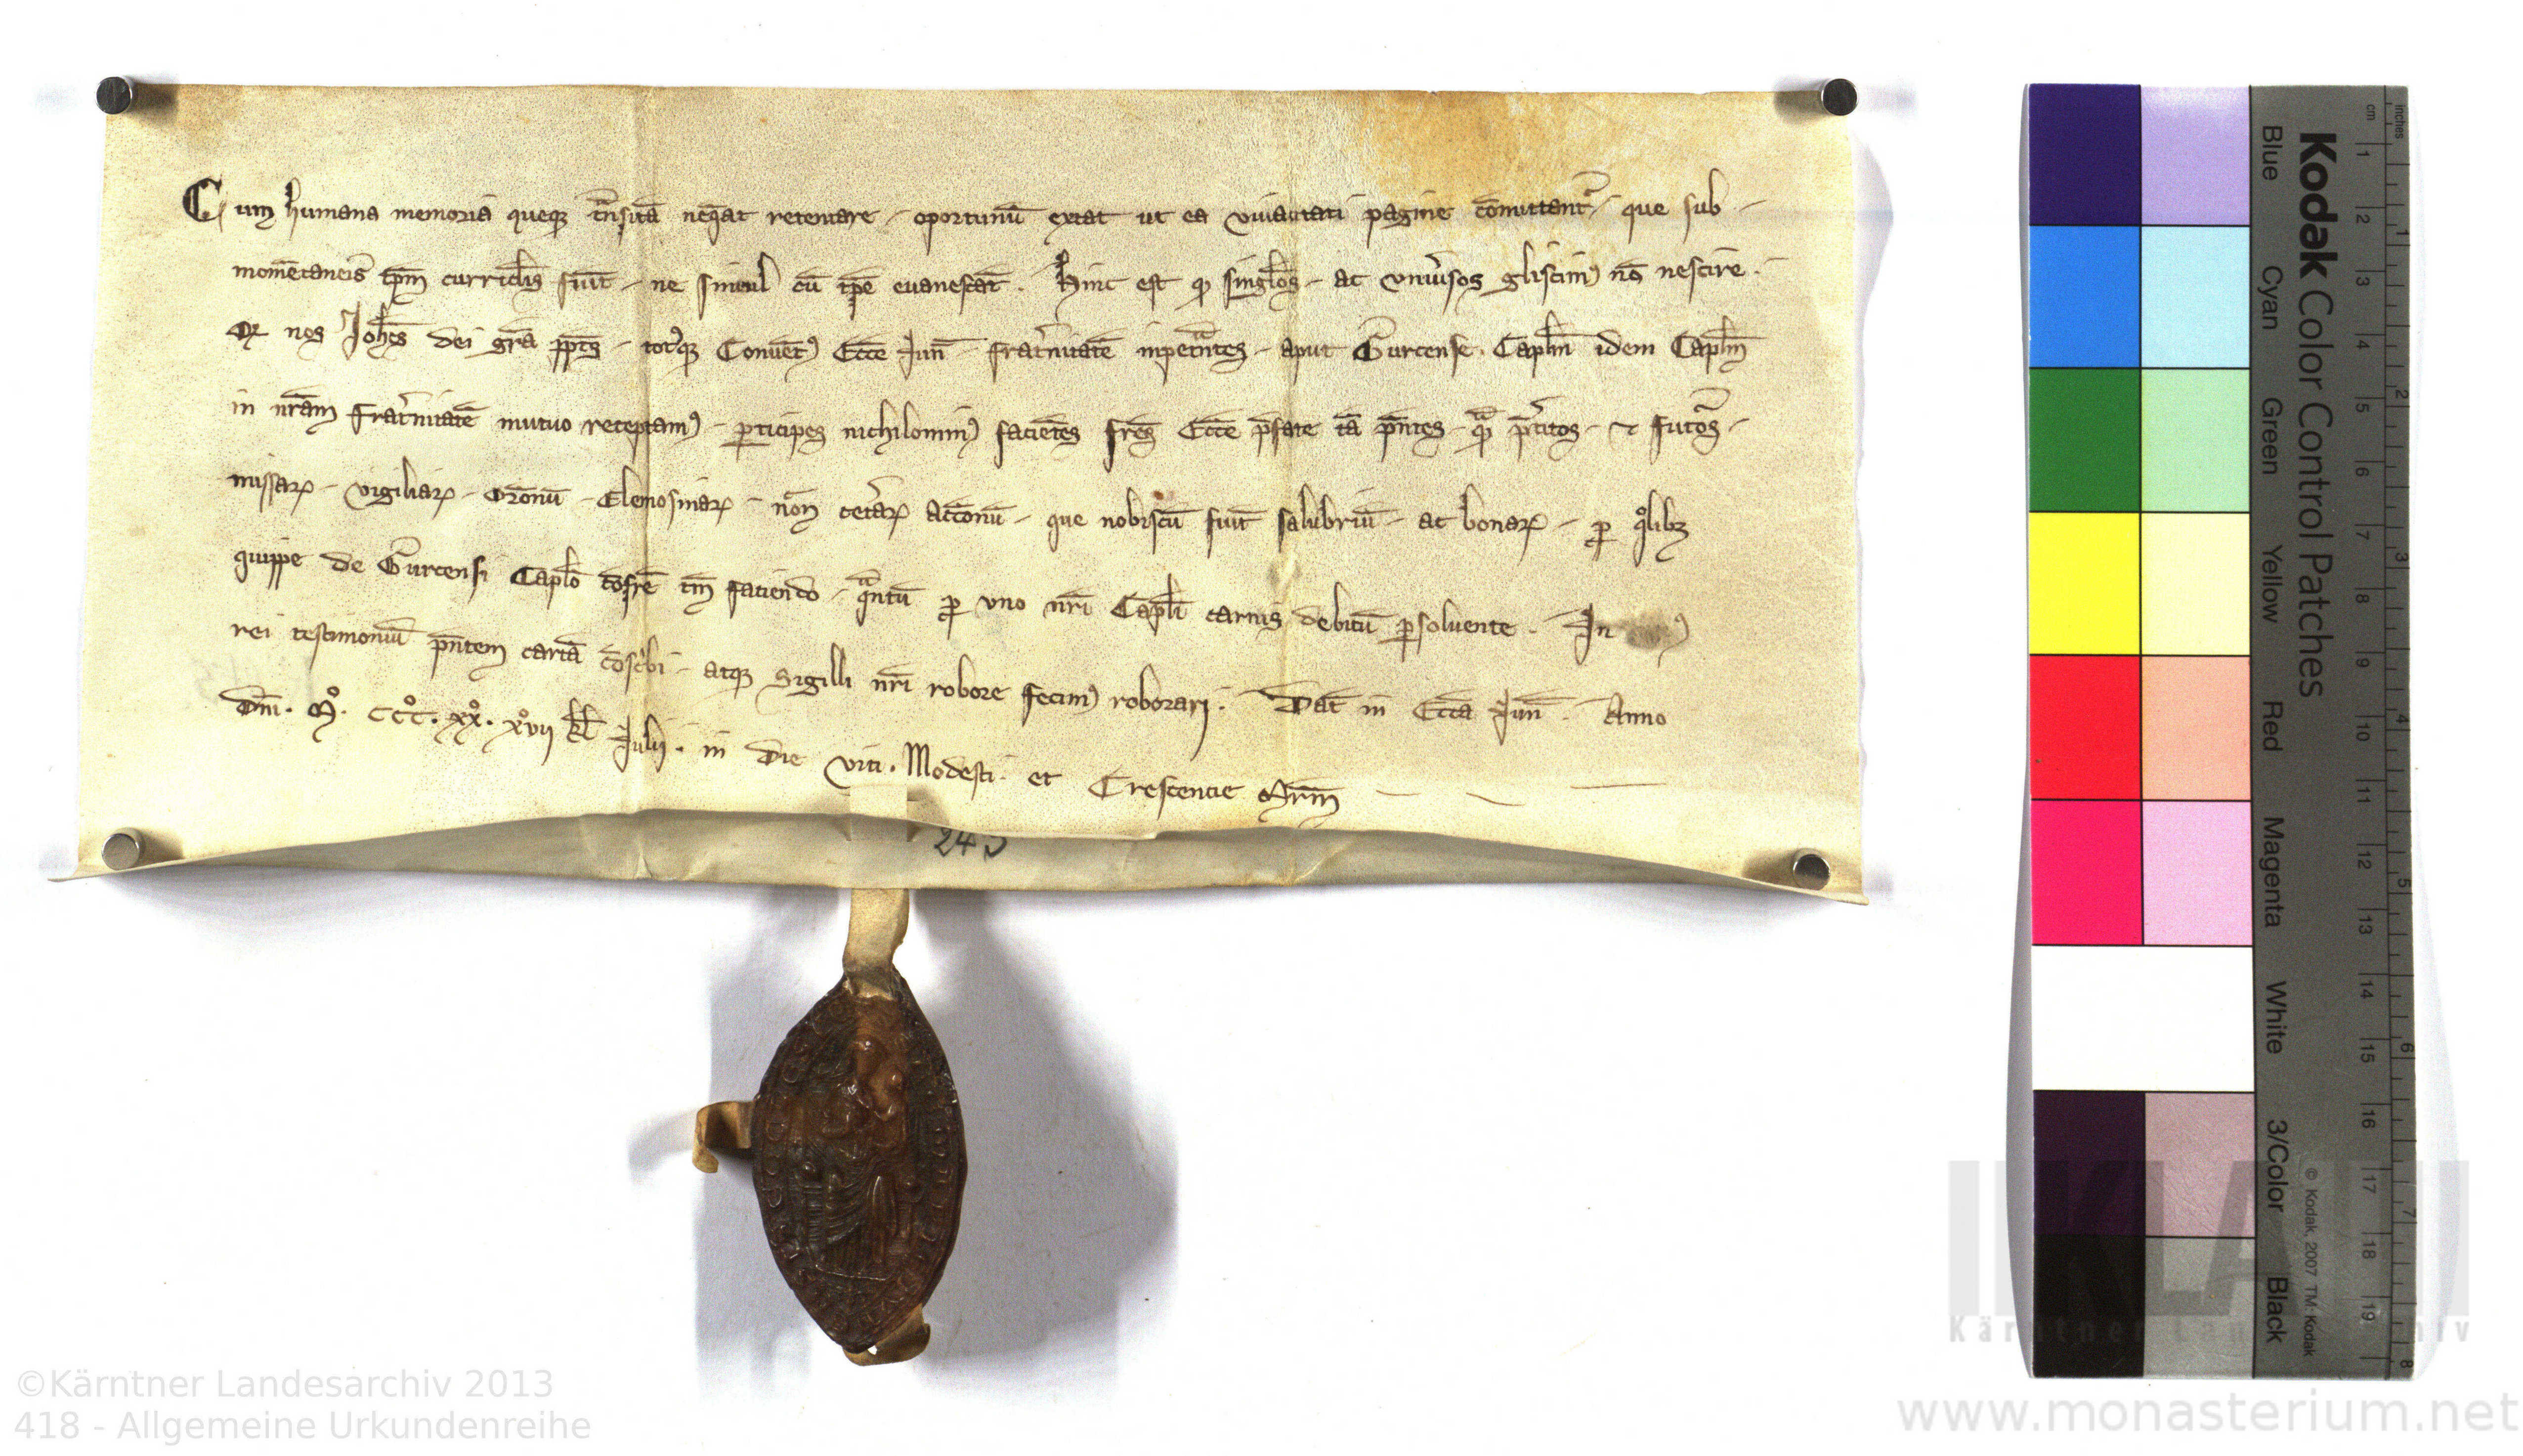 Cum humana memoria queq; t̄nsita neq̄at retentare - oportunū extat ut ea vivacitati pagine cōmittant᷑ que sub -
momētaneis tp̄m curriclis fiūt - ne simul cū tp̄e evanescāt . Hinc est q̛ singlos - ac univ̾sos gliscim᷒ nō nescire .
nos Joh̄es dei gr̄a pp̄ts - totq; Convēt᷒ Ecc̄e Jun̄ - frat̾nitatē inpet̄ntes - aput Gurcense . Capl̄m idem Capl̄m
in nr̄am frat̾nitatē mutuo receptam᷒ - ꝑticipes nichilomin᷒ faciētes fr̄es Ecc̄e p̄fate tā p̄ntes - qͣ p̄t̾itos - ⁊ futōs -
missaꝝ - vigiliaꝝ - or̄onū - Elemosinaꝝ - cet̾aꝝ acc̄onū - que nobiscū fiūt salubriū - ac bonaꝝ - ꝓ qͦlibꝫ
quippe de Gurcensi Capl̄o cōfr̄e tm̄ faciendo - qͣntū ꝓ uno nr̄i Capl̄i carnis debitū ꝑsolvente . In
rei testimoniū p̄ntem cartā cōsc̾bi - atq; Sigilli nr̄i robore fecim᷒ roborari . Dat̄ in Ecc̄a Jun̄ . Anno
Dn̄i . Mͦ. CCCͦ. XXͦ. xvii kl̄ Julij . in die viti . Modesti . et Crescentie Mr̄m̄
243
Kodak Color Control Patches
Blue Cyan Green Yellow Red Magenta White 3/Color Black
© Kodak, 2007 TM: Kodak
cm 1 2 3 4 5 6 7 8 9 10 11 12 13 14 15 16 17 18 19
inches 1 2 3 4 5 6 7 8
KLA
Kärntner Landesarchiv
©Kärntner Landesarchiv 2013
418 - Allgemeine Urkundenreihe
www.monasterium.net